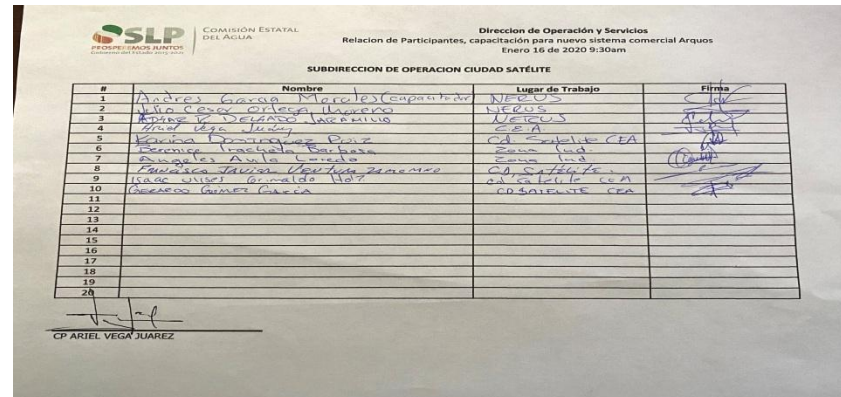 SLP
PROSPEREMOS JUNTOS
Gobierno del Estado 2015-2021
COMISIÓN ESTATAL
DEL AGUA
Direccion de Operación y Servicios
Relacion de Participantes, capacitación para nuevo sistema comercial Arquos
Enero 16 de 2020 9:30am
SUBDIRECCION DE OPERACION CIUDAD SATÉLITE
# Nombre Lugar de Trabajo Firma
1 Andres Garcia Morales (capacitador) NERUS
2 Julio Cesar Ortega Moreno NERUS
3 ADHAR R. DELGADO JARAMILLO NERUS
4 Ariel Vega Juárez C.E.A
5 Karina Dominguez Ruiz Cd. Satelite CEA
6 Berenice Tracheta Barbosa Zona Ind.
7 Angeles Avila Loredo Zona Ind
8 Francisco Javier Ventura Zamarro CD. Satélite.
9 Isaac Ulises Grimaldo cd Satelite CEA
10 GERARDO GOMEZ GARCIA CD SATELITE CEA
11
12
13
14
15
16
17
18
19
20
CP ARIEL VEGA JUAREZ